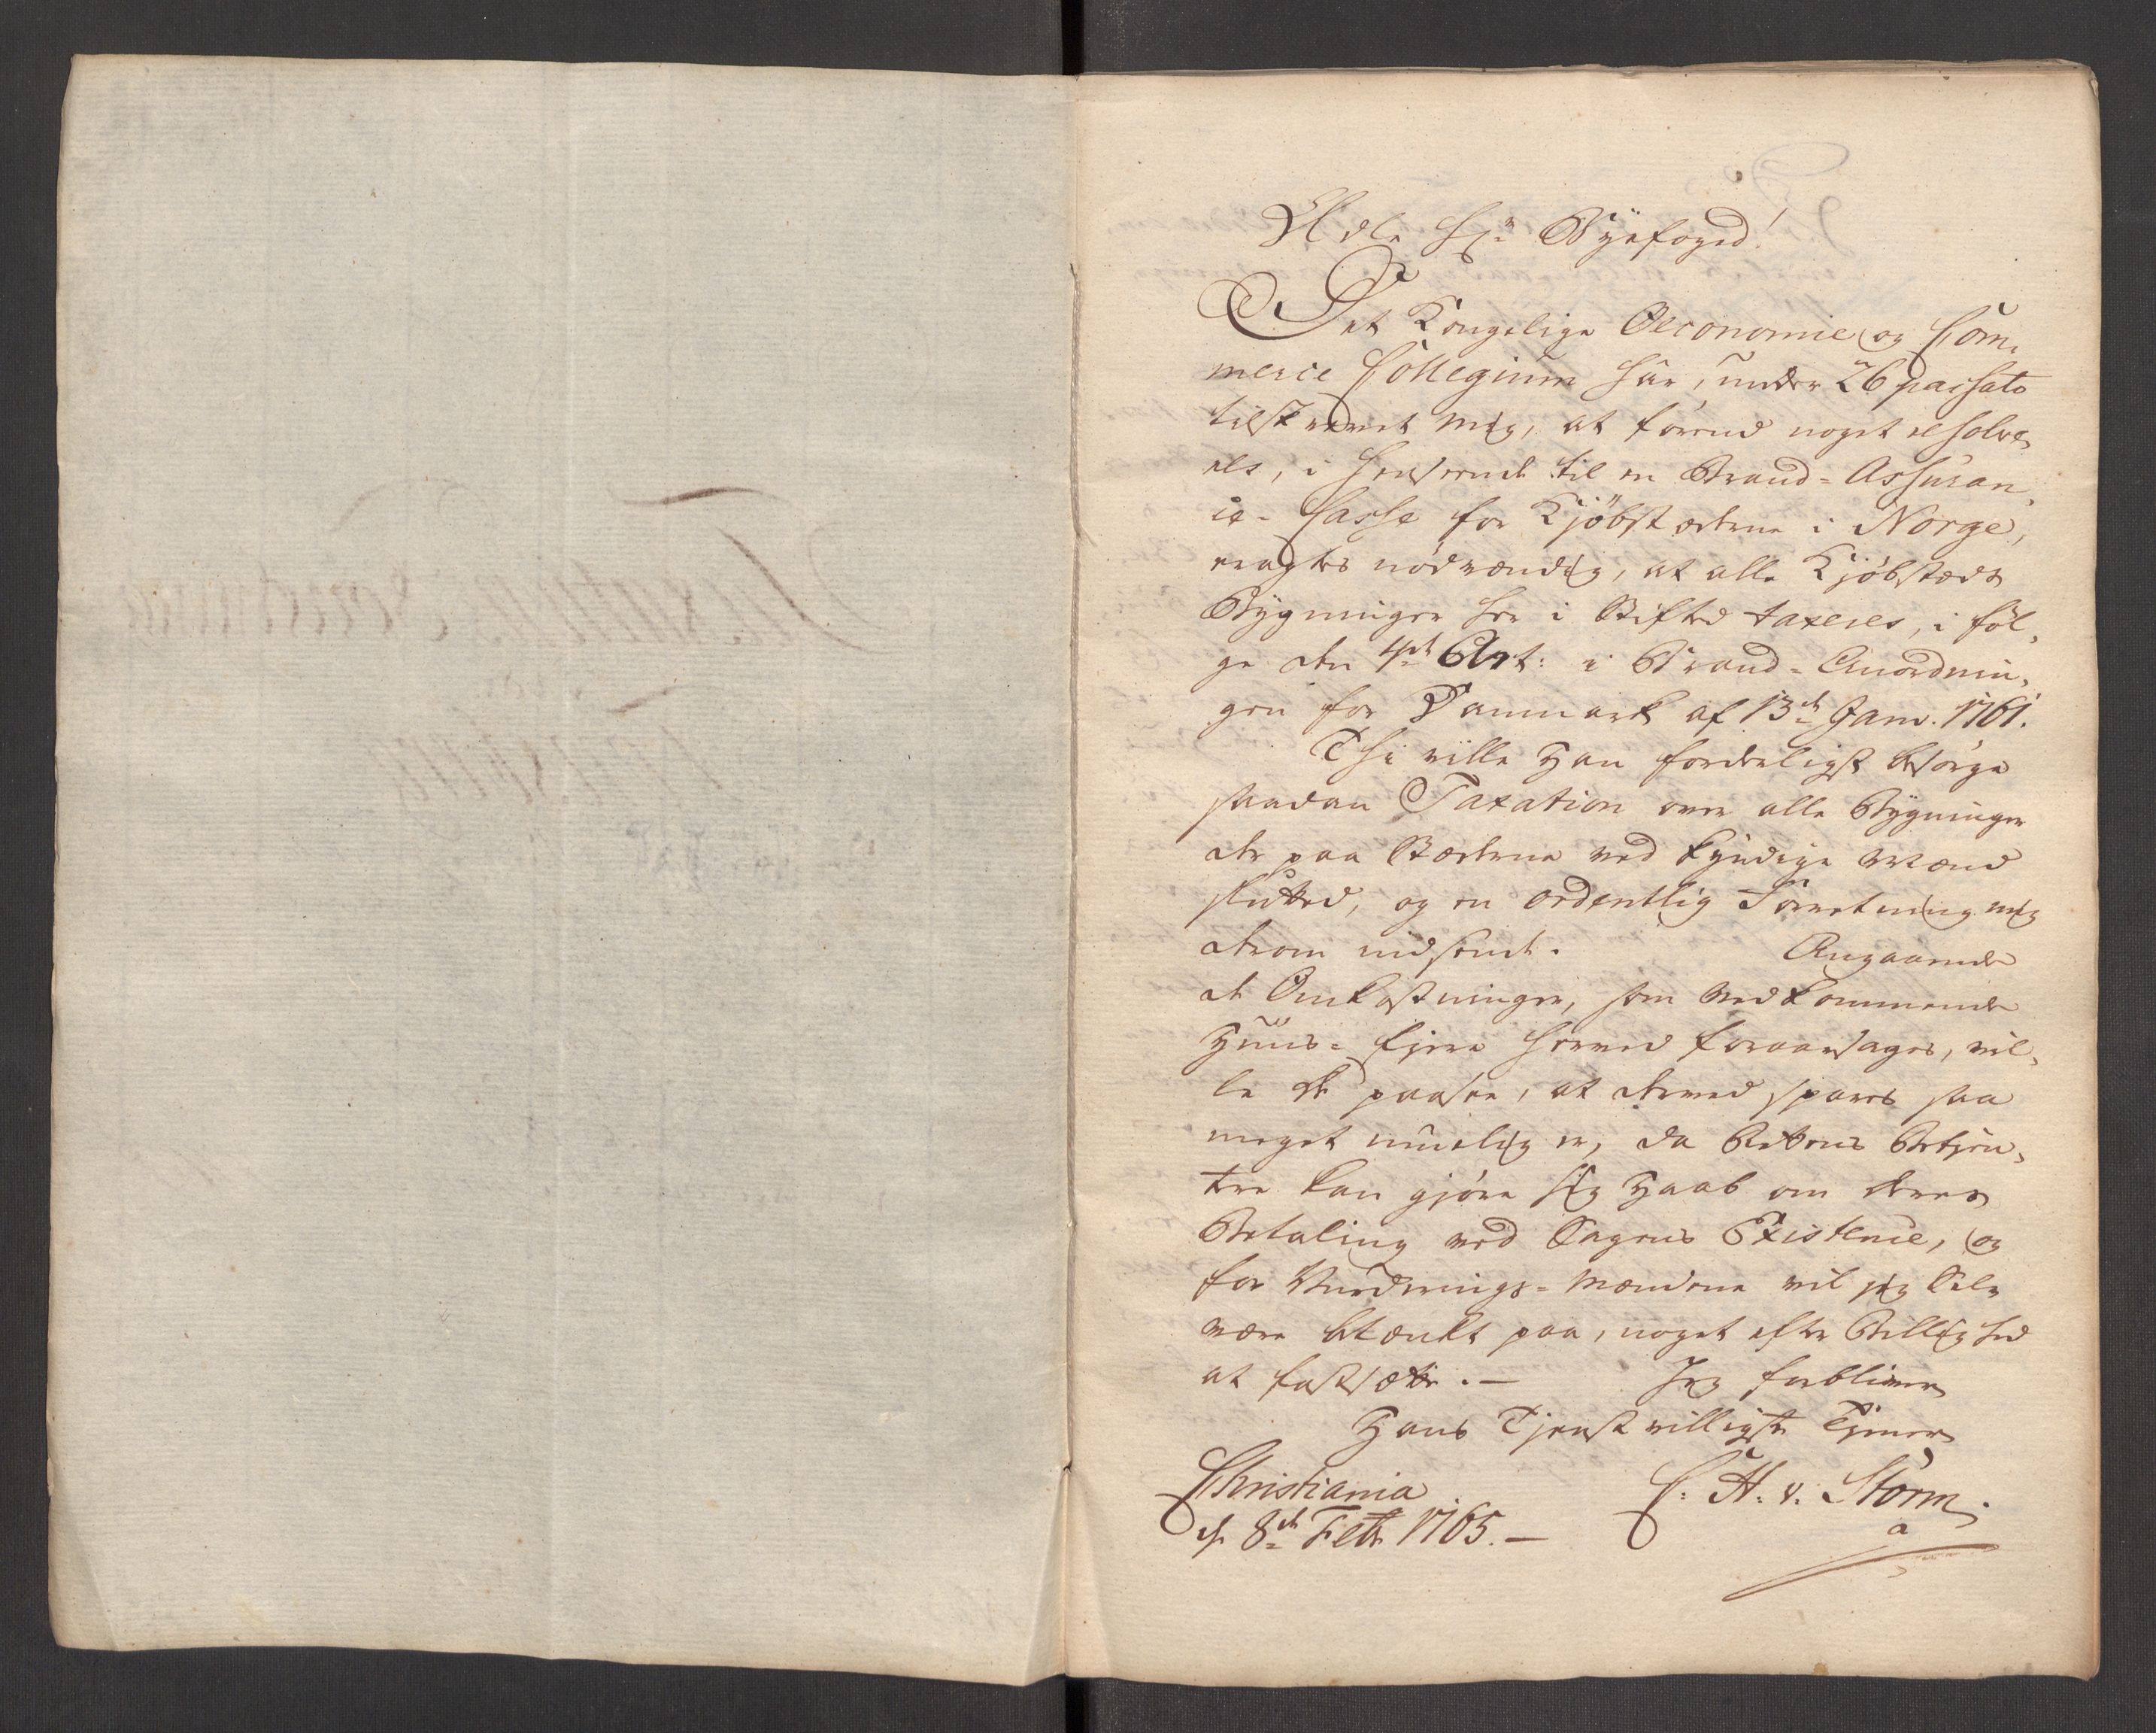 Ædle Hr Byefoged!
Det Kongelige Oeconomie og Com-
mercie Collegium har, under 26 passato
tilskrevet mig, at forend noget resolve-
res, i Henseende til en Brand-Assuran-
ce-Casse for Kjøbstæderne i Norge,
eragtes nødvændig, at alle Kjøbstæds
Bygninger her i Stifted taxeres, i føl-
ge den 4de Art: i Brand-Anordnin-
gen for Danmark af 13de Janv. 1761.
Thi ville Han forderligst besørge
saadan Taxation over alle Bygninger
der paa Stæderne ved kyndige Mænd
slutted, og en ordentlig Forretning mig
derom indsendt. Angaaende
de Omkostninger, som Vedkommende
Huus-Ejere herved foraarsages, vil-
le De paasee, at derved spares saa
meget mueligt er, da Rettens Betjen-
tere kan gjøre sig Haab om deres
Betaling ved Sagens Existence, og
for Vurderings-Mændene vil jeg Selv
være betænkt paa, noget efter Billighed
at fastsætte. – Jeg forbliver
Hans Tjenstvilligste Tjener
Christiania C: H: v: Storm.
d. 8de Febr 1765. –